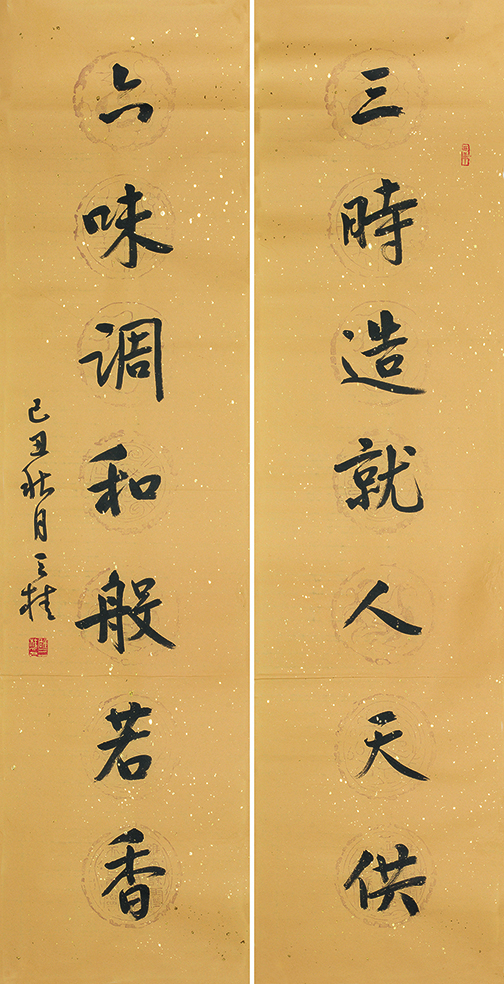 三時造就人天供
六味調和般若香
己丑秋月